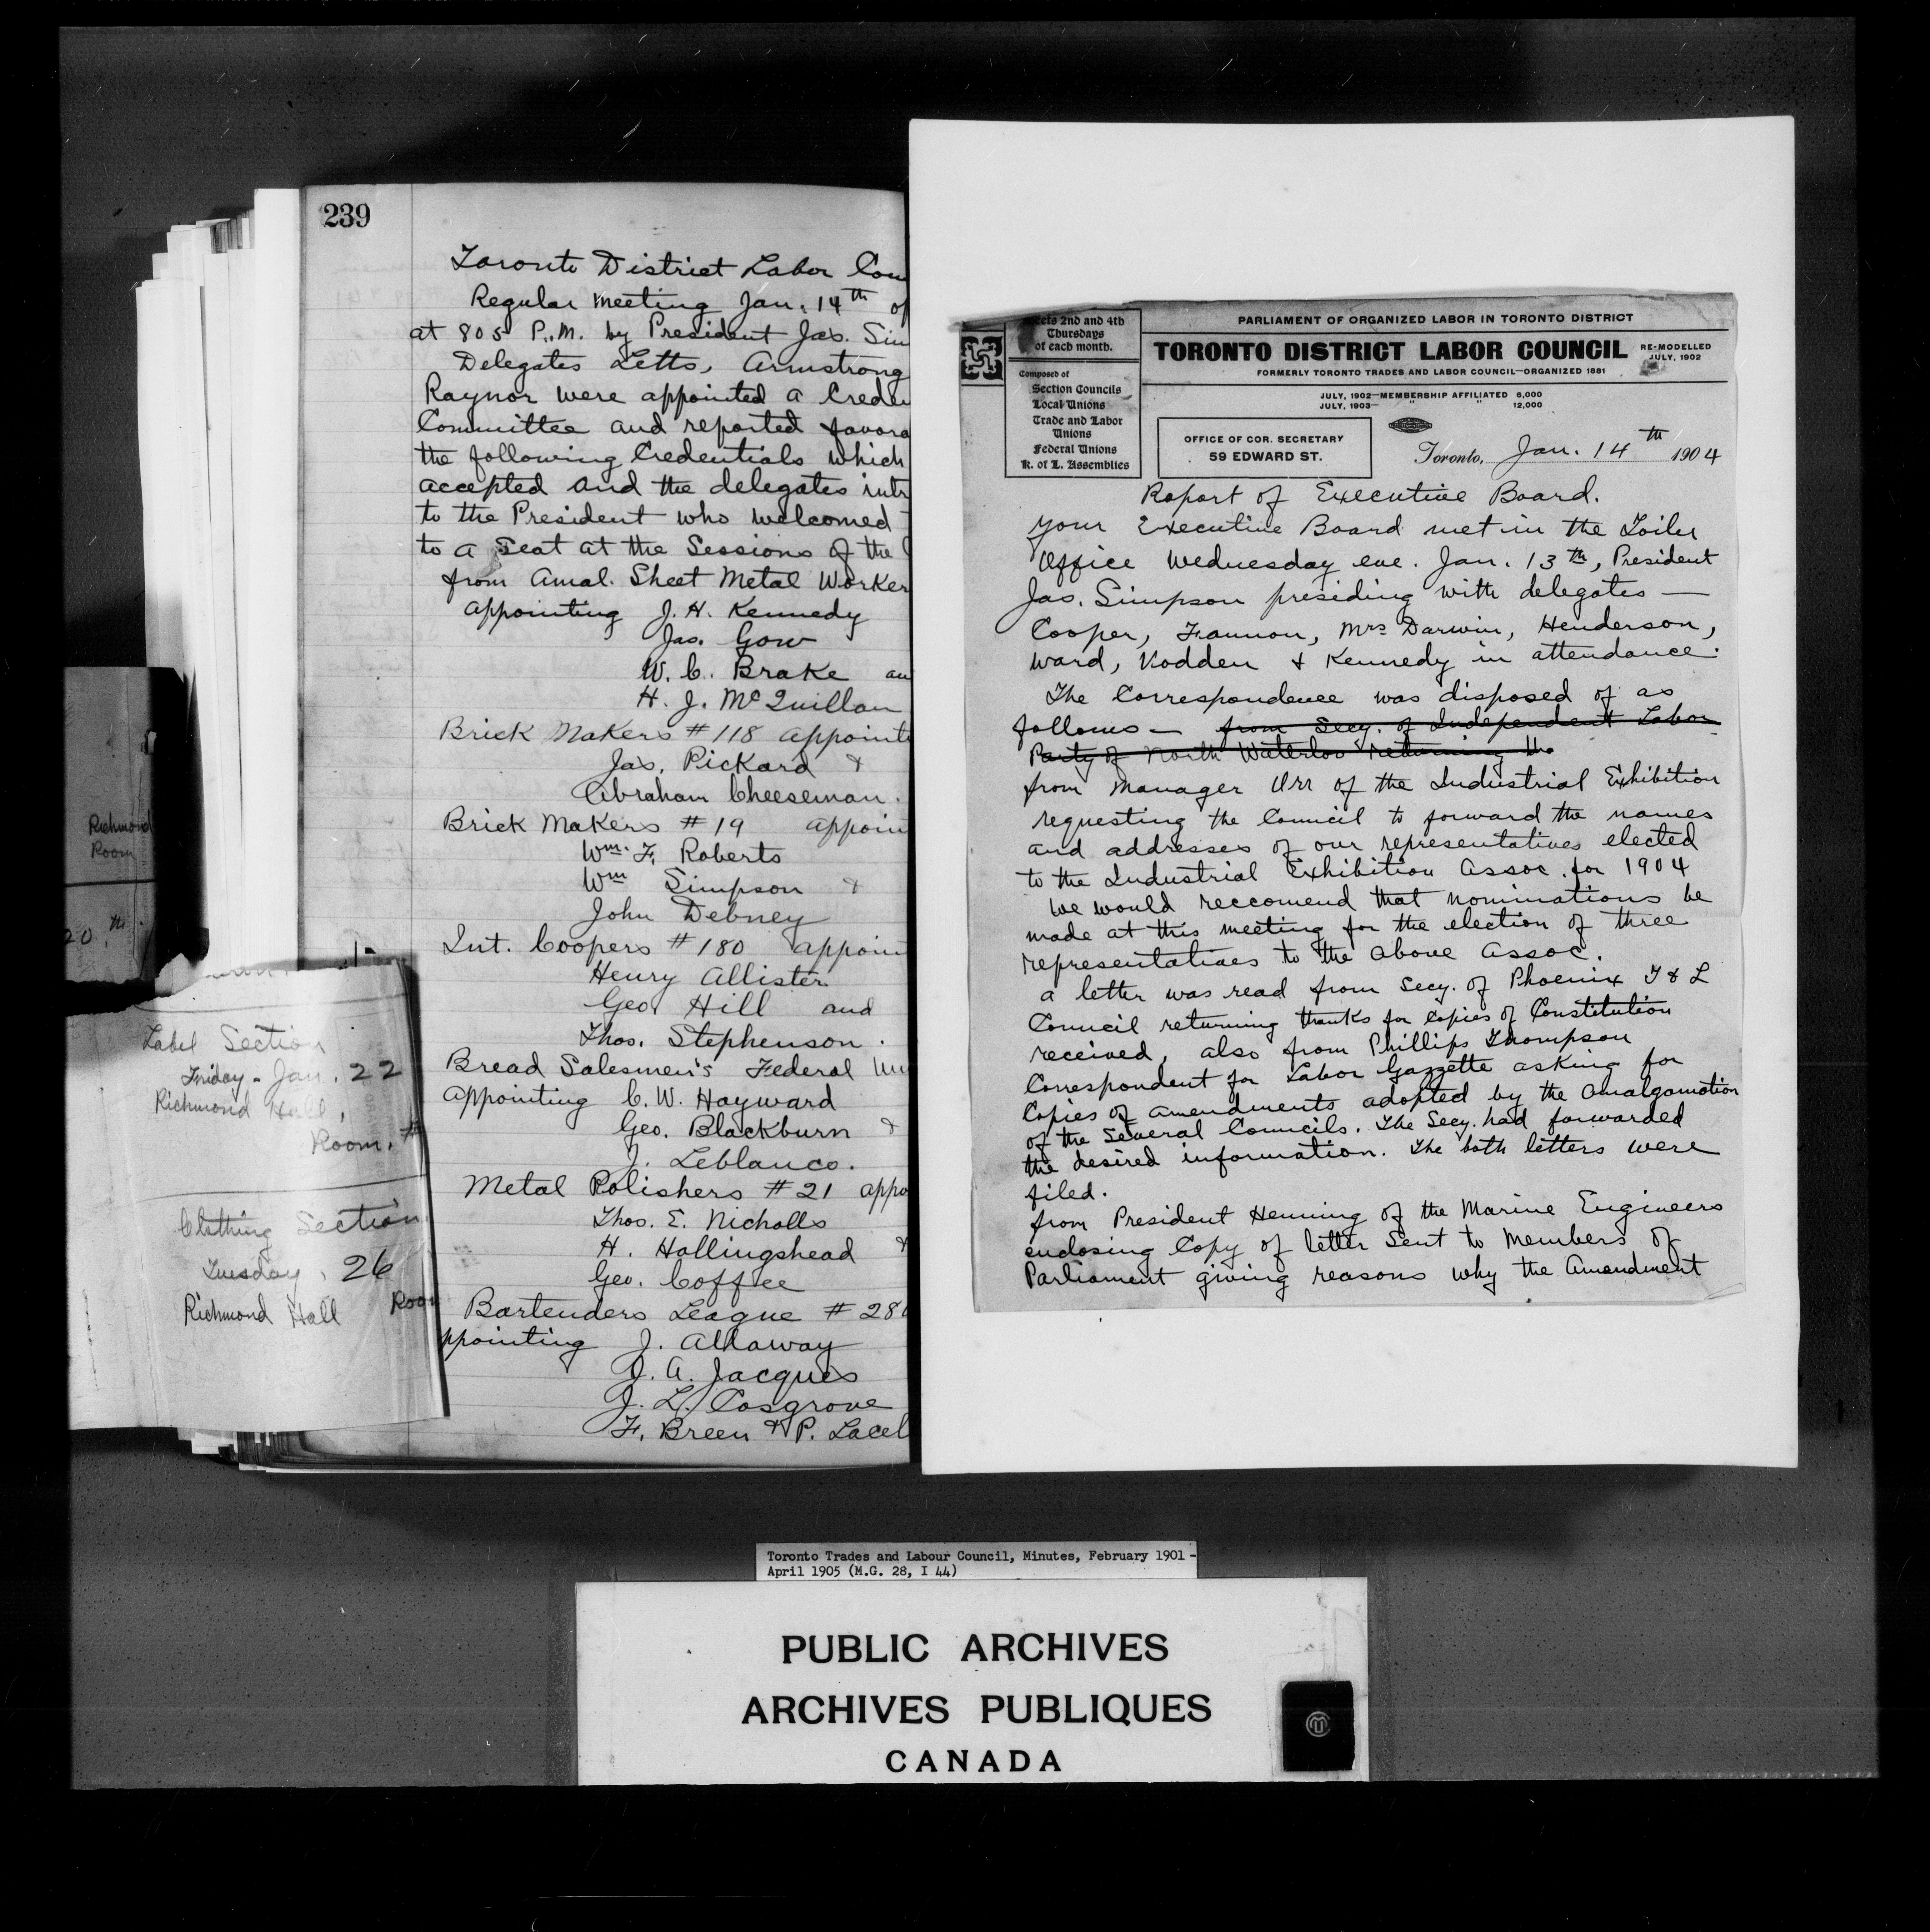 239
Toronto District Labor
Regular meeting Jan. 14th
at 805 P.M. by President Jas.
Delegates Letts, Armstrong
Raynor were appointed a
Committee and reported
the following Credentials which
accepted and the delegates
to the President who welcomed
to a Seat at the Sessions of the
from Amal. Sheet Metal Worker
appointing J. H. Kennedy
Jas. Gow
W. C. Brake
H. J. McQuillan
Brick Makers #118
Jas. Pickard &
Abraham Cheeseman.
Brick Makers #19
Wm. F. Roberts
Wm Simpson &
John Debney
Int. Coopers #180
Henry Allister
Geo Hill and
Thos. Stephenson.
Bread Salesmen's Federal
appointing C. W. Hayward
Geo. Blackburn &
J. Leblanco.
Metal Polishers #21
Thos. E. Nicholls
H. Hollingshead &
Geo. Coffee
Bartenders League # 28
ppointing J. Allaway
J. A. Jacques
J. L. Cosgrove
F. Breen & P.
Richmond
Room
20th
Label Section
Friday - Jan. 22
Richmond Hall,
Room. #
Clothing Section
Tuesday, 26
Richmond Hall Room
2nd and 4th
Thursdays
of each month.
Composed of
Section Councils
Local Unions
Trade and Labor
Unions
Federal Unions
K. of L. Assemblies
PARLIAMENT OF ORGANIZED LABOR IN TORONTO DISTRICT
TORONTO DISTRICT LABOR COUNCIL RE-MODELLED
JULY, 1902
FORMERLY TORONTO TRADES AND LABOR COUNCIL—ORGANIZED 1881
JULY, 1902—MEMBERSHIP AFFILIATED 6,000
JULY, 1903— " " 12,000
OFFICE OF COR. SECRETARY
59 EDWARD ST.
Toronto, Jan. 14th 1904
Report of Executive Board.
Your Executive Board met in the Toiler
Office Wednesday eve. Jan. 13th, President
Jas. Simpson presiding with delegates —
Cooper, Fannon, Mrs Darwin, Henderson,
Ward, Vodden & Kennedy in attendance.
The Correspondence was disposed of as
follows — from Secy. of Independent Labor
Party of North Waterloo returning the
from Manager Orr of the Industrial Exhibition
requesting the Council to forward the names
and addresses of our representatives elected
to the Industrial Exhibition Assoc. for 1904
We would reccomend that nominations be
made at this meeting for the election of three
representatives to the above Assoc.
a letter was read from Secy. of Phoenix T & L
Council returning thanks for Copies of Constitution
received, also from Phillips Thompson
Correspondent for Labor Gazzette asking for
Copies of amendments adopted by the Amalgamation
of the Several Councils. The Secy. had forwarded
the desired information. The both letters were
filed.
from President Henning of the Marine Engineers
enclosing Copy of letter Sent to Members of
Parliament giving reasons why the Amendment
Toronto Trades and Labour Council, Minutes, February 1901 -
April 1905 (M.G. 28, I 44)
PUBLIC ARCHIVES
ARCHIVES PUBLIQUES
CANADA